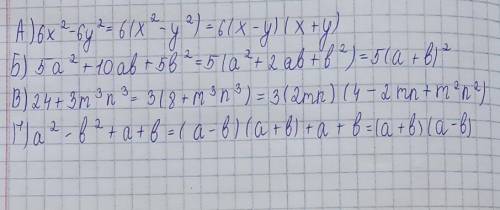 А) 6x²-6y²=6(x²-y²)=6(x-y)(x+y)
Б) 5a²+10ab+5b²=5(a²+2ab+b²)=5(a+b)²
В) 24+3m³n³=3(8+m³n³)=3(2mn)(4-2mn+m²n²)
Г) a²-b²+a+b=(a-b)(a+b)+a+b=(a+b)(a-b)